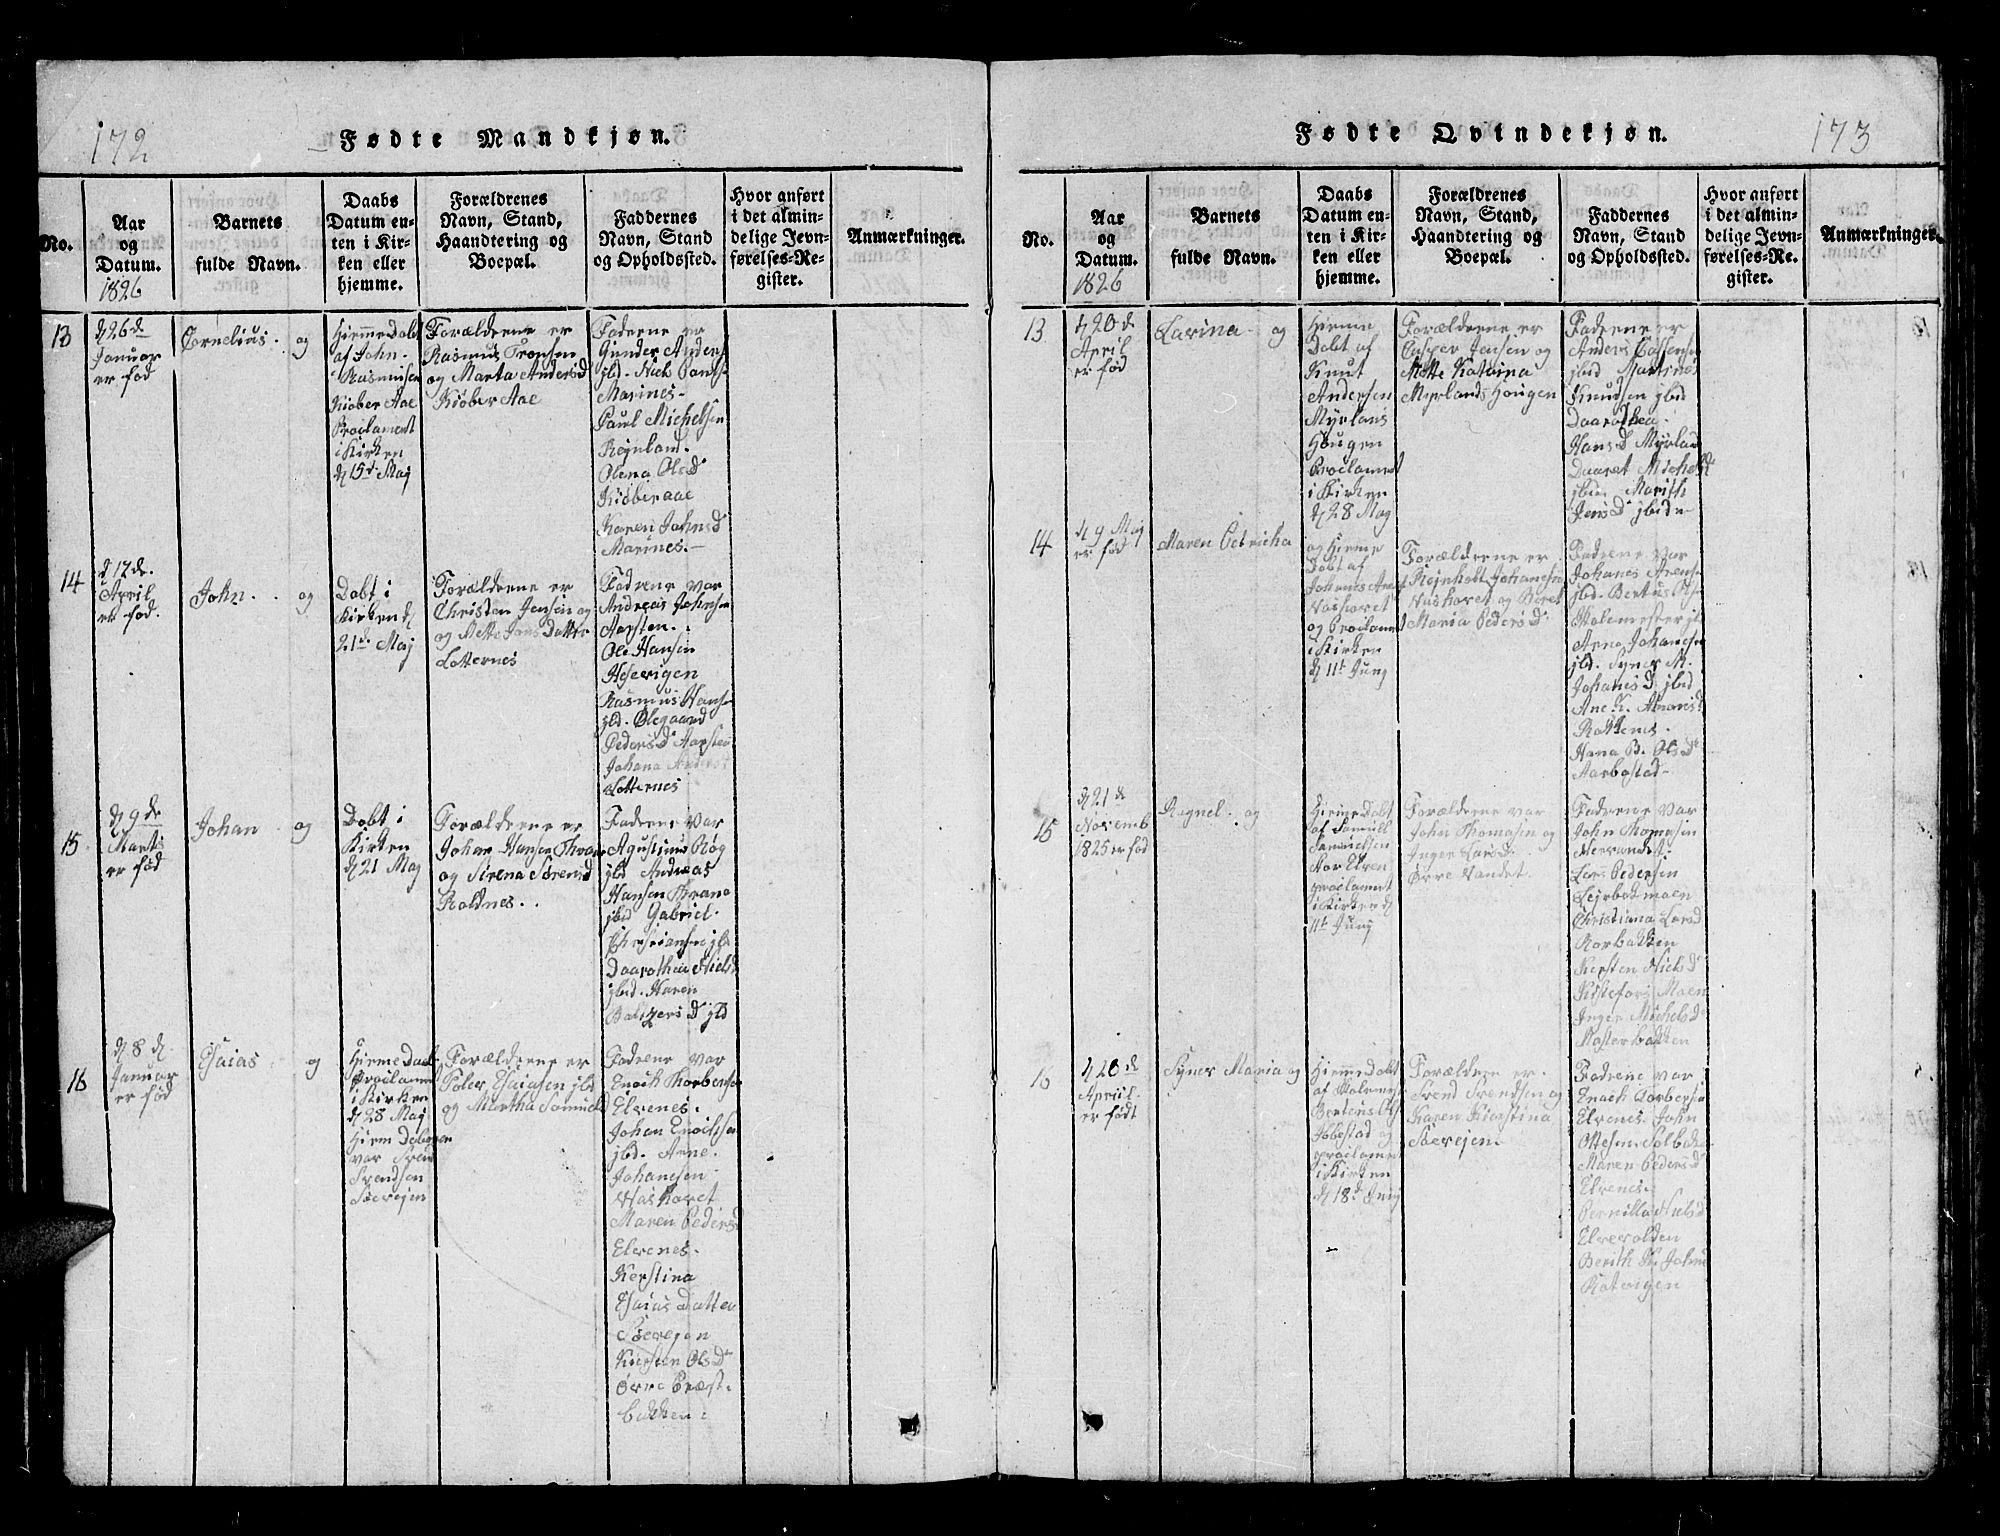 172
Fødte Mandkjøn.
No.
Aar
og
Datum.
1826
Barnets
fulde Navn.
Daabs
Datum en-
ten i Kir-
ken eller
hjemme.
Forældrenes
Navn, Stand,
Haandtering og
Boepæl.
Faddernes
Navn, Stand
og Opholdssted.
Hvor anført
i det almin-
delige Jevn-
førelses-Re-
gister.
Anmærkninger.
13
d 26 de
Januar
er fød
Cornelius. og
Hiemme Dobt
af John
Rasmusen
Kiøber Aae
Proclament
i Kirken
d 15d Maj
Forældrene er
Rasmus Tronsen
og Marta Andersd
Kiøber Aae
Faderne er
Gunder Anders
jbd. Nich
Marines-
Paul Michelsen
Rejnland.
Olena Olsd
Kiøberaae
Karen Johnsd
Marines.-
14
d 17 de.
April
er fød.
John. og
Dobt i
Kirken d
21de Maj
Forældrene er
Christen Jensen og
og Mette Jons Datter
Lotternes
Fadrene var
Andreas Johnsen
Aarsten.
Ole Hansen
Rasmus Hans
jbd. Olegaard
Pedersd Aarsten
Johana Andersd
Lotternes
15
d 9 de
Marts
er fød
Johan og
Dobt i
Kirken
d 21 Maj
Forældrene er
Johan Hansen Thrane
og Sirena Sørensd
Roldnes..
Faderne var
Agustinus Røg
jbd Andreas
Hansen Thrane
jbid Gabriel
Christiansen jbd
Daarothea Nielsd
jbid. Haren
Baltzersd jbd
16
d 8 d.
Januar
er fød
Esaias og
Hieme Daab
Proclament
i Kirken
d 28 Maj
Hiem Døberen
var Sven
Svendsen
Søevejen
Forældrene er
Peler Esaiasen jbd
og Martha Samueld
Fadrene var
Enoch Thorbensen
Elvenes.
Johan Enochsen
jbd. Arne.
Johanesen
Vashavet
Maren Pedersd
Elvenes.
Kerstina
Esaias Datter
Søevejen
Kiersten Olsd
Øvre Præst.
bakken.
173
Fødte Qvindekjøn.
No.
Aar
og
Datum.
1826
Barnets
fulde Navn.
Daabs
Datum en-
ten i Kir-
ken eller
hjemme.
Forældrenes
Navn, Stand,
Haandtering og
Boepæl.
Faddernes
Navn, Stand
og Opholdssted.
Hvor anført
i det almin-
delige Jevn-
førelses-Re-
gister.
Anmærkninger.
13
d 20 d
April
er fød
Larina. og
Hieme
Dobt af
Knut
Andersen
Myrlans
Hougen
Proclament
i Kirken
d 28 Maj
Forældrene er
Casper Jensen og
Mette Katrina
Myrlands Hougen
Fadrene er
Anders
jbid Martines
Knudsen jbid
Daarothea
Hansd Myrland
Daaret Michelsd
jbid Marith
Jensd jbid-
14
d 9 Maj
er fød
Maren Petricha
og Hieme
Dobt af
Johanes
Vashavet
og Proclament
i Kirken
d 11t Juny
Forældrene er
Rejnholt Johanesen
Vashavet og Beret
Maria Pedersd
Fadrene var
Johanes Arensen
jbd. Bertus
Holemester
Arne Johanesen
jbd. Syner M.
Johanesd jbid
Ane K.
Rottenes.
Hana B. Olsd
Aarbostad-
15
d 21 d
Novemb
1825 er fød
Ragnel. og
Hieme Dobt
af Samuel
Samuelsen
proclament
i Kirken d
11t Juny
Forældrene var
John Thomasen og
Inger Larsd.
Øvre Vandet.
Fadrene var
John Thomesen
Lars Pedersen
Lejrbekmoen
Christiana Larsd
Korbakken
Kersten Nielsd
Moen
Inger Michelsd
Klosterbakken
16
d 20 d
April
er født
Syner Maria og
Hieme Dobt
af
Bertens
Ibbestad og
proclament
i Kirken
d 18d Juny
Forældrene er.
Svend Svendsen og
Karen Kierstina
Søevejen.
Fadrene var
Enoch Torbersen
Elvenes. John
Ottesen
Maren Pedersd
Elvenes.
Pernilla Nielsd
Elvevolden
Berith K. Johns